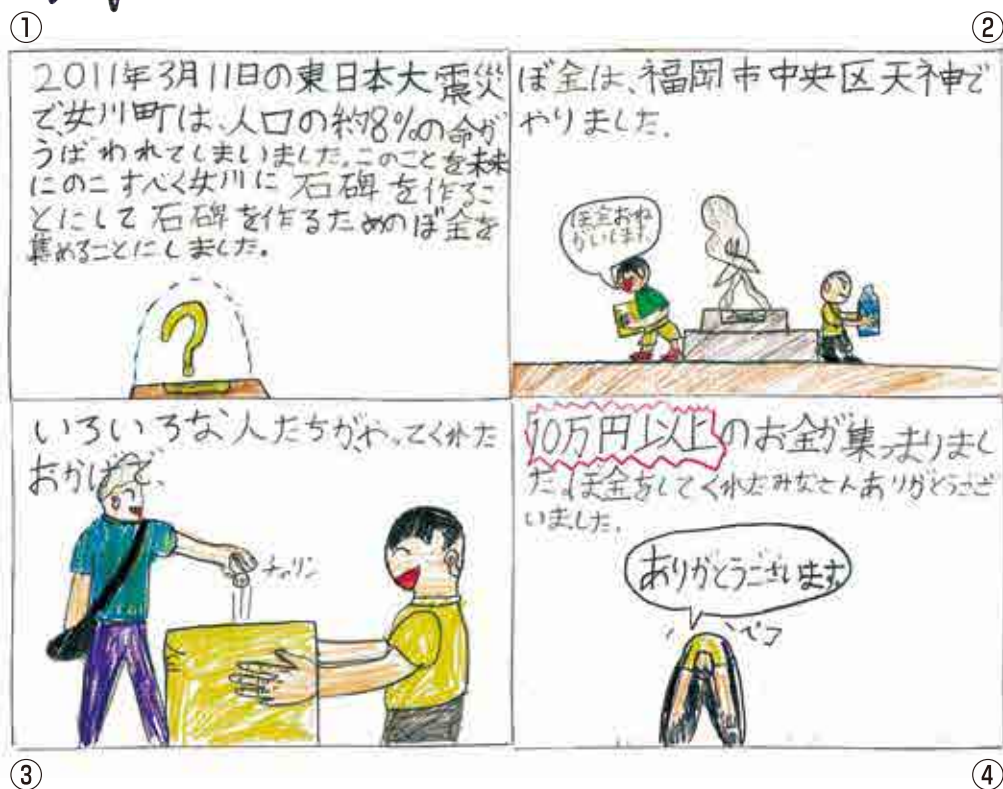 ①
2011年3月11日の東日本大震災
で、女川町は、人口の約8%の命が
うばわれてしまいました。このことを未来
にのこすべく女川に石碑を作るこ
とにして石碑を作るためのぼ金を
集めることにしました。
?
②
ぼ金は、福岡市中央区天神で
やりました。
ぼ金おね
がいします
③
いろいろな人たちが、やってくれた
おかげで、
チャリン
④
10万円以上のお金が集っまりまし
た。ぼ金をしてくれたみなさんありがとうござ
いました。
ありがとうございます
ペコ